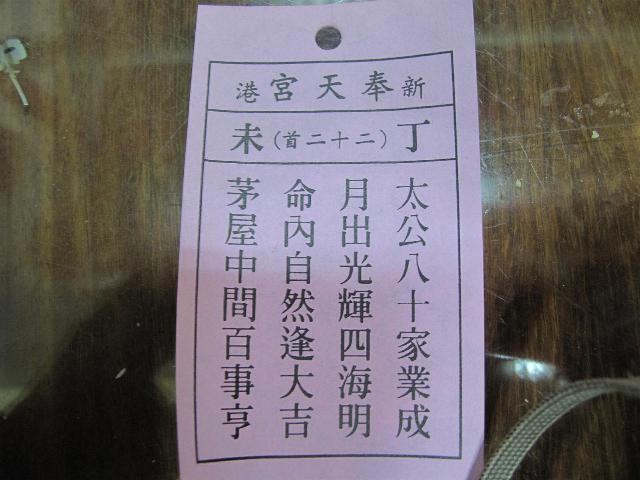 新奉天宮港
丁(二十二首)未
太公八十家業成
月出光輝四海明
命內自然逢大吉
茅屋中間百事亨